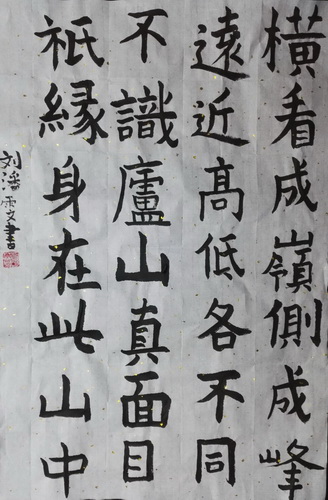 橫看成嶺側成峰
遠近高低各不同
不識廬山真面目
祇緣身在此山中
刘潘雨文書